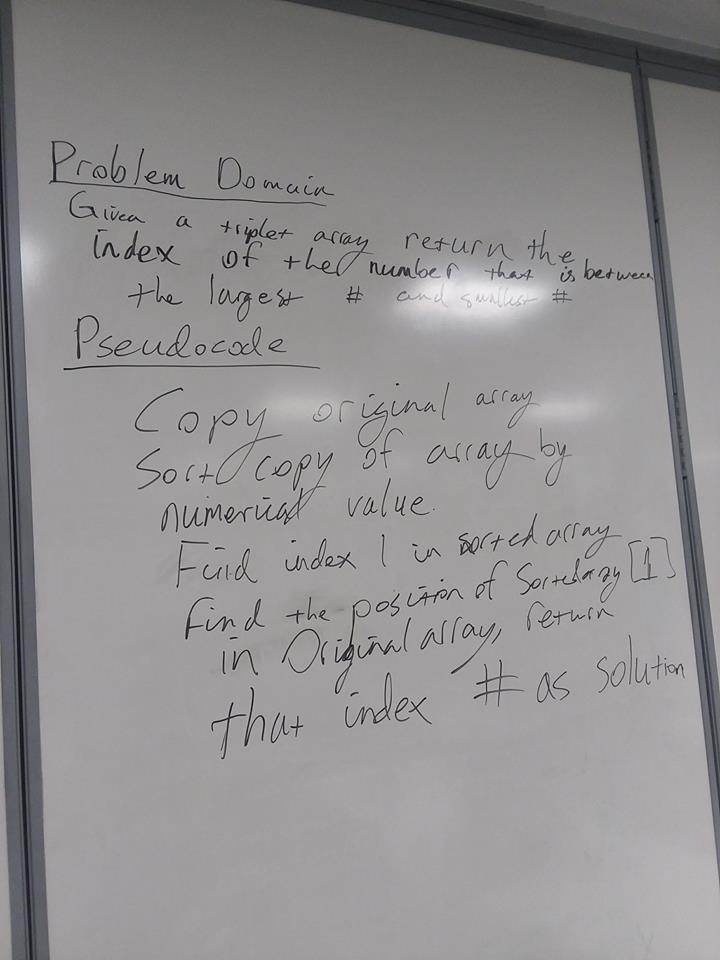 Problem Domain
Given a triplet array return the
index of the number that is between
the largest # and smallest #
Pseudocode
Copy original array
Sort copy of array by
numerical value.
Find index 1 in sorted array
Find the position of Sortedarray [1]
in Original array, return
that index # as solution